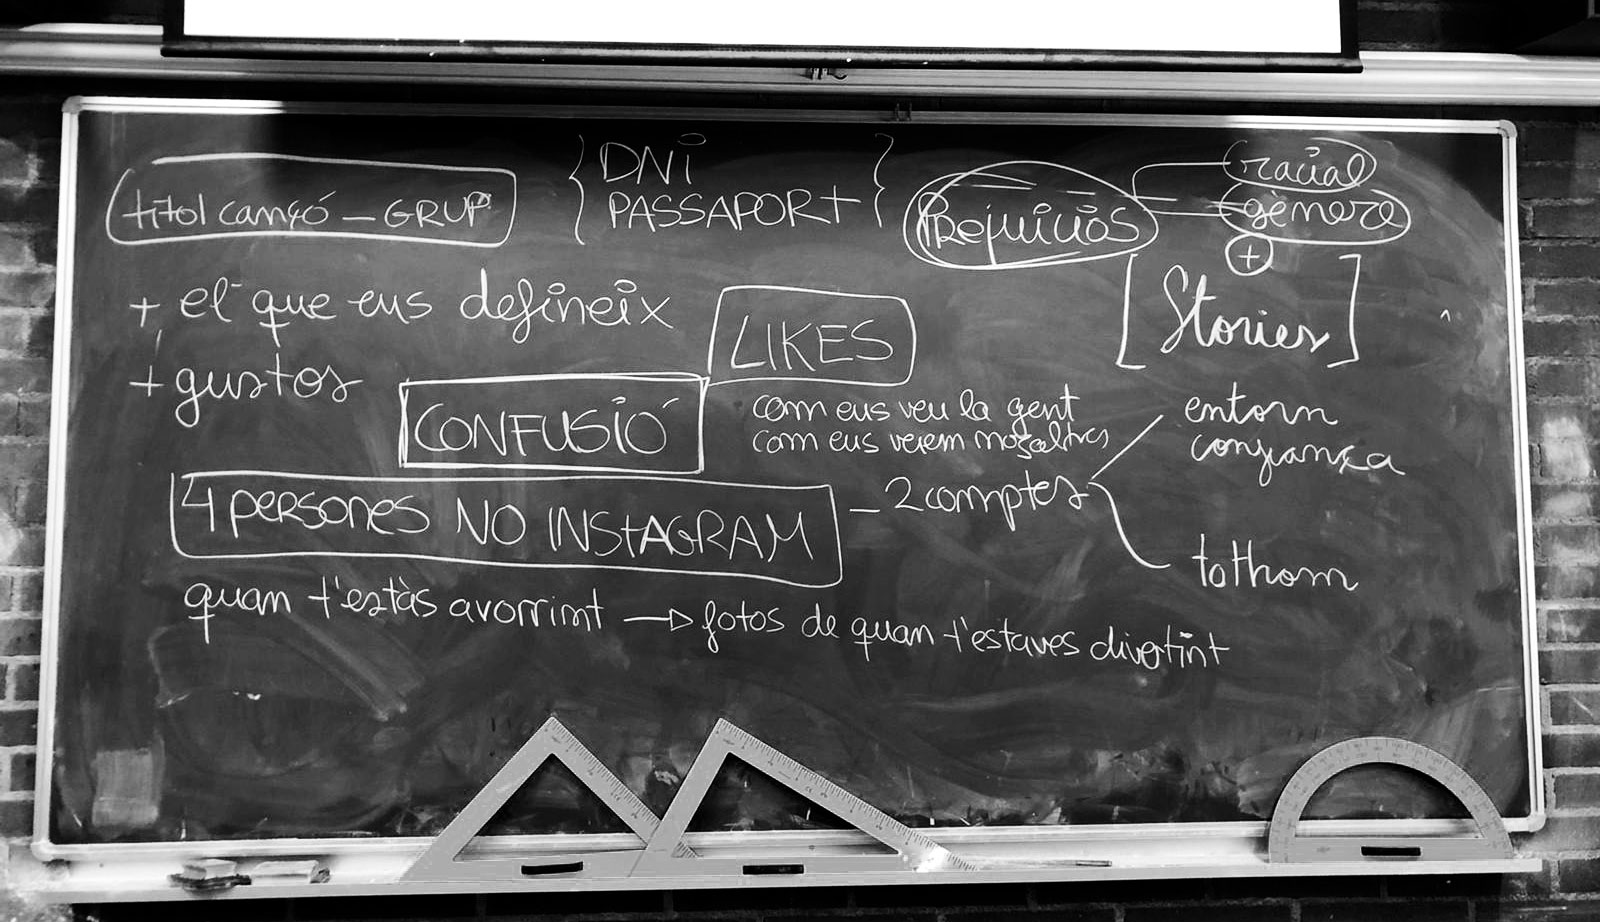 títol cançó - GRUP
DNi
PASSAPORT
PREjuicios
racial
gènere
+
[Stories]
+ el que ens defineix
+ gustos
LIKES
CONFUSIÓ
com ens veu la gent
com ens veiem nosaltres
4 persones NO INSTAGRAM
- 2 comptes
entorn
confiança
tothom
quan t'estàs avorrint → fotos de quan t'estaves divertint